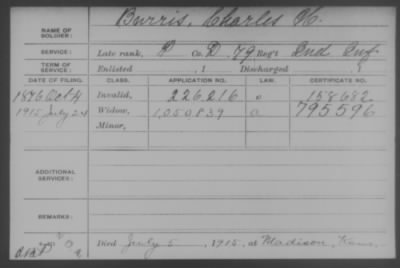 Burris, Charles W.
NAME OF SOLDIER:
SERVICE: Late rank, P Co. D, 79 Reg't Ind Inf
TERM OF SERVICE: Enlisted , 1 Discharged , 1
DATE OF FILING. CLASS. APPLICATION NO. LAW. CERTIFICATE NO.
1876 Oct 4 Invalid, 226,216 158682
1915 July 24 Widow, 1,050,839 795596
Minor,
ADDITIONAL SERVICES:
REMARKS:
Died July 5, 1915, at Madison, Kans.